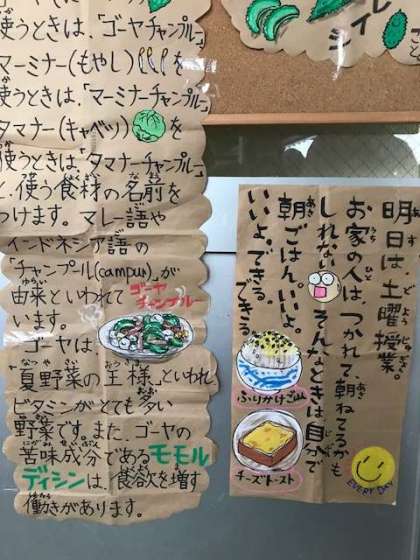 使うときは、「ゴーヤチャンプルー」
マーミナー(もやし)を
使うときは、「マーミナーチャンプルー」
タマナー(キャベツ)を
使うときは「タマナーチャンプルー」
と、使う食材の名前を
つけます。マレー語や
インドネシア語の
「チャンプル(campur)」が
由来といわれて
います。
ゴーヤ
チャンプルー
ゴーヤは、
「夏野菜の王様」といわれ
ビタミンがとても多い
野菜です。また、ゴーヤの
苦味成分であるモモル
ディシンは、食欲を増す
働きがあります。
明日は土曜授業。
お家の人は、つかれて、朝ねてるかも
しれない。そんなときは自分で
朝ごはん。いいよ。
いいよ。できる。できる。
ふりかけごはん
チーズトースト
EVERY DAY